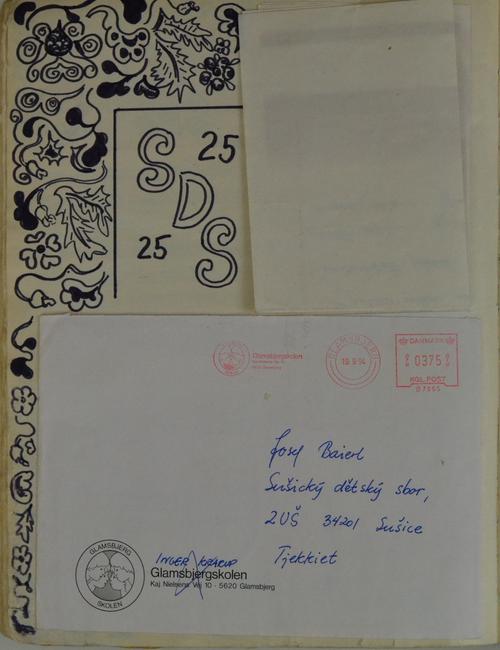 S 25
D
25 S
Glamsbjergskolen
GLAMSBJERG
19.9.94
DANMARK
0375
KGL. POST
Josef Baierl
Sušický dětský sbor,
ZUŠ 34201 Sušice
Tjekkiet
GLAMSBJERG
SKOLEN
INGER
Glamsbjergskolen
Kaj Nielsens Vej 10 - 5620 Glamsbjerg